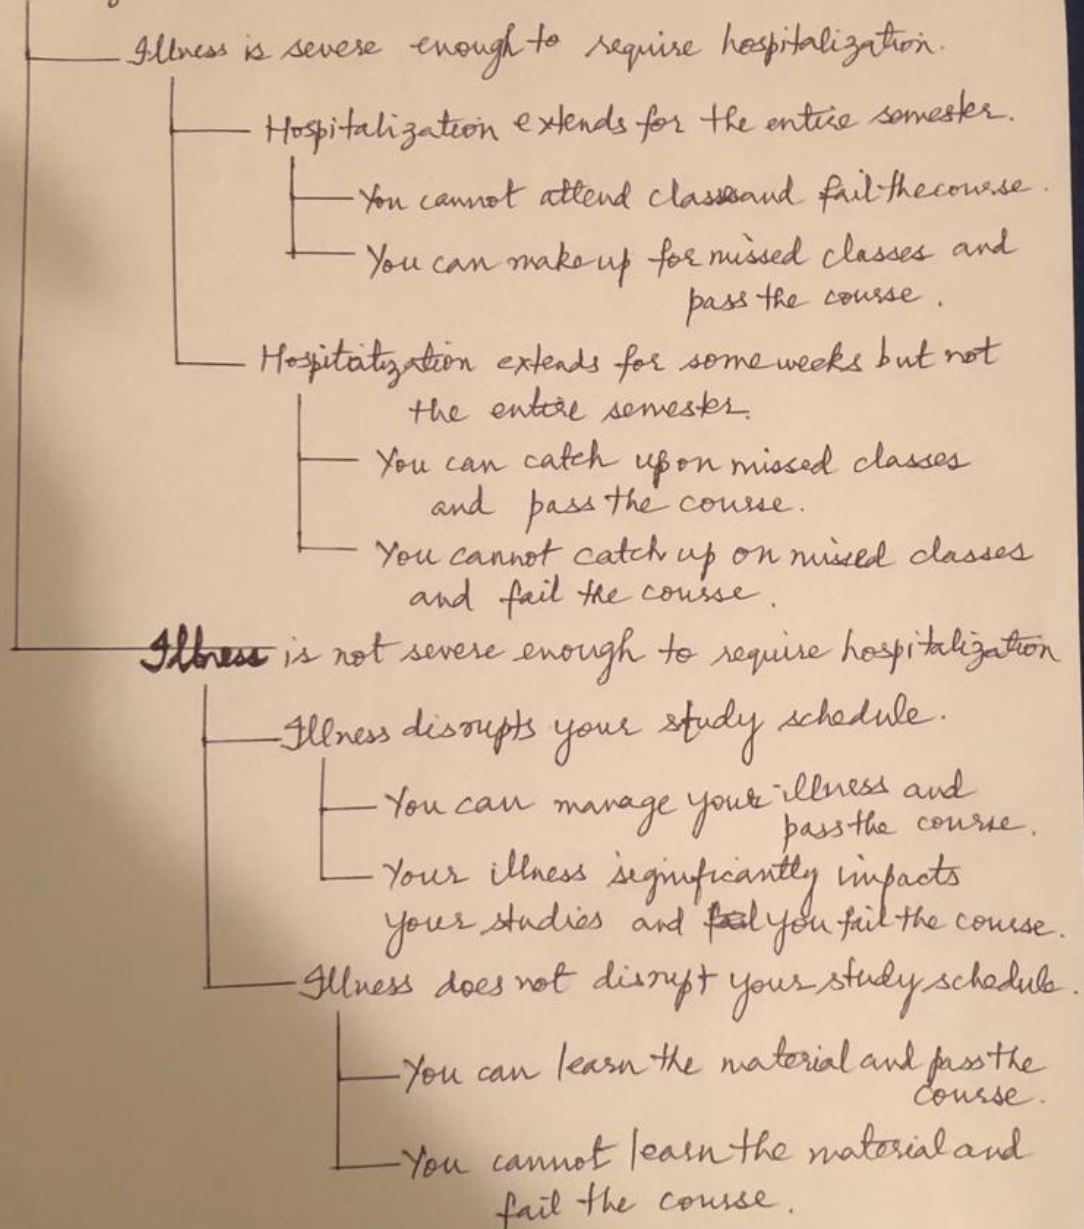 Illness is severe enough to require hospitalization.
Hospitalization extends for the entire semester.
You cannot attend class and fail the course.
You can make up for missed classes and
pass the course.
Hospitalization extends for some weeks but not
the entire semester.
You can catch up on missed classes
and pass the course.
You cannot catch up on missed classes
and fail the course.
Illness is not severe enough to require hospitalization
Illness disrupts your study schedule.
You can manage your illness and
pass the course.
Your illness significantly impacts
your studies and you fail the course.
Illness does not disrupt your study schedule.
You can learn the material and pass the
course.
You cannot learn the material and
fail the course.